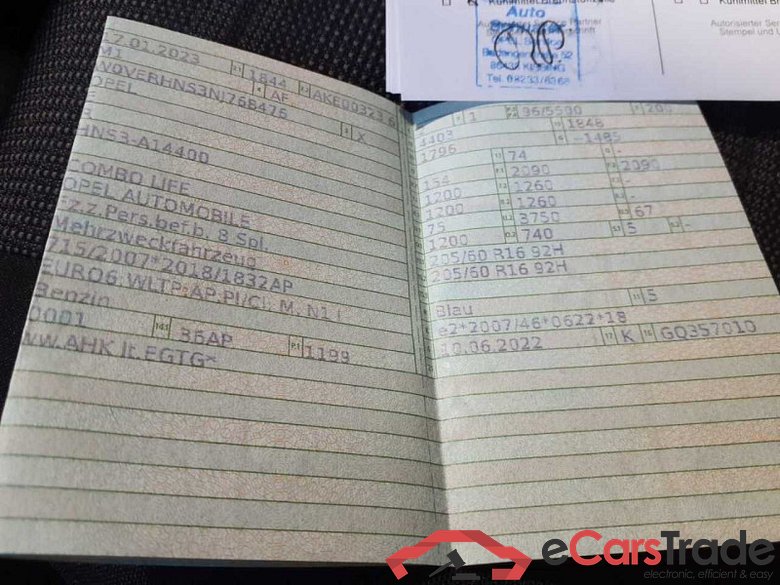 Kühlmittel Brennstoffzelle
Kühlmittel Br
Auto
Partner
Autorisierter Ser
Stempel und U
Tel. 08233/6368
7 01.2023 1844 AKE00323 6
M1 AF
W0VERHNS3NJ768476 X
OPEL
HNS3-A14400
COMBO LIFE
OPEL AUTOMOBILE
Fz.z.Pers.bef.b. 8 Spl.
Mehrzweckfahrzeug
715/2007*2018/1832AP
EURO6;WLTP;AP;PI/CI; M, N1 I
Benzin
0001 14.1 36AP P.1 1199
ww.AHK lt.EGTG*
1 96/5500 200
4403 1848
1796 -1485
74 -
154 2090 2090
1200 1260 -
1200 1260 -
75 3750 67
1200 740 5 -
205/60 R16 92H
205/60 R16 92H
Blau 5
e2*2007/46*0622*18
10.06.2022 17 K 16 GQ357010
eCarsTrade
electronic, efficient & easy